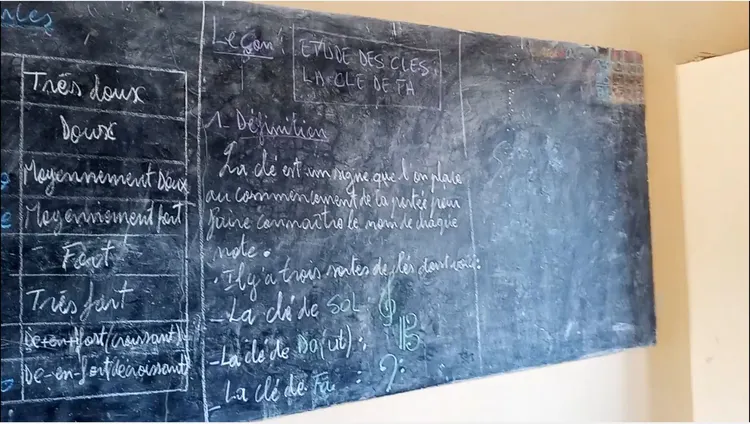 Très doux
Doux
Moyennement Doux
Moyennement fort
Fort
Très fort
De-en-fort(croissant)
De-en-fort(decroissant)
Leçon :
ETUDE DES CLES :
LA CLE DE FA
1. Définition
La clé est un signe que l'on place
au commencement de la portée pour
faire connaître le nom de chaque
note.
. Il y a trois sortes de clés dont voici :
- La clé de SOL :
- La clé de Do(ut) :
- La clé de Fa :